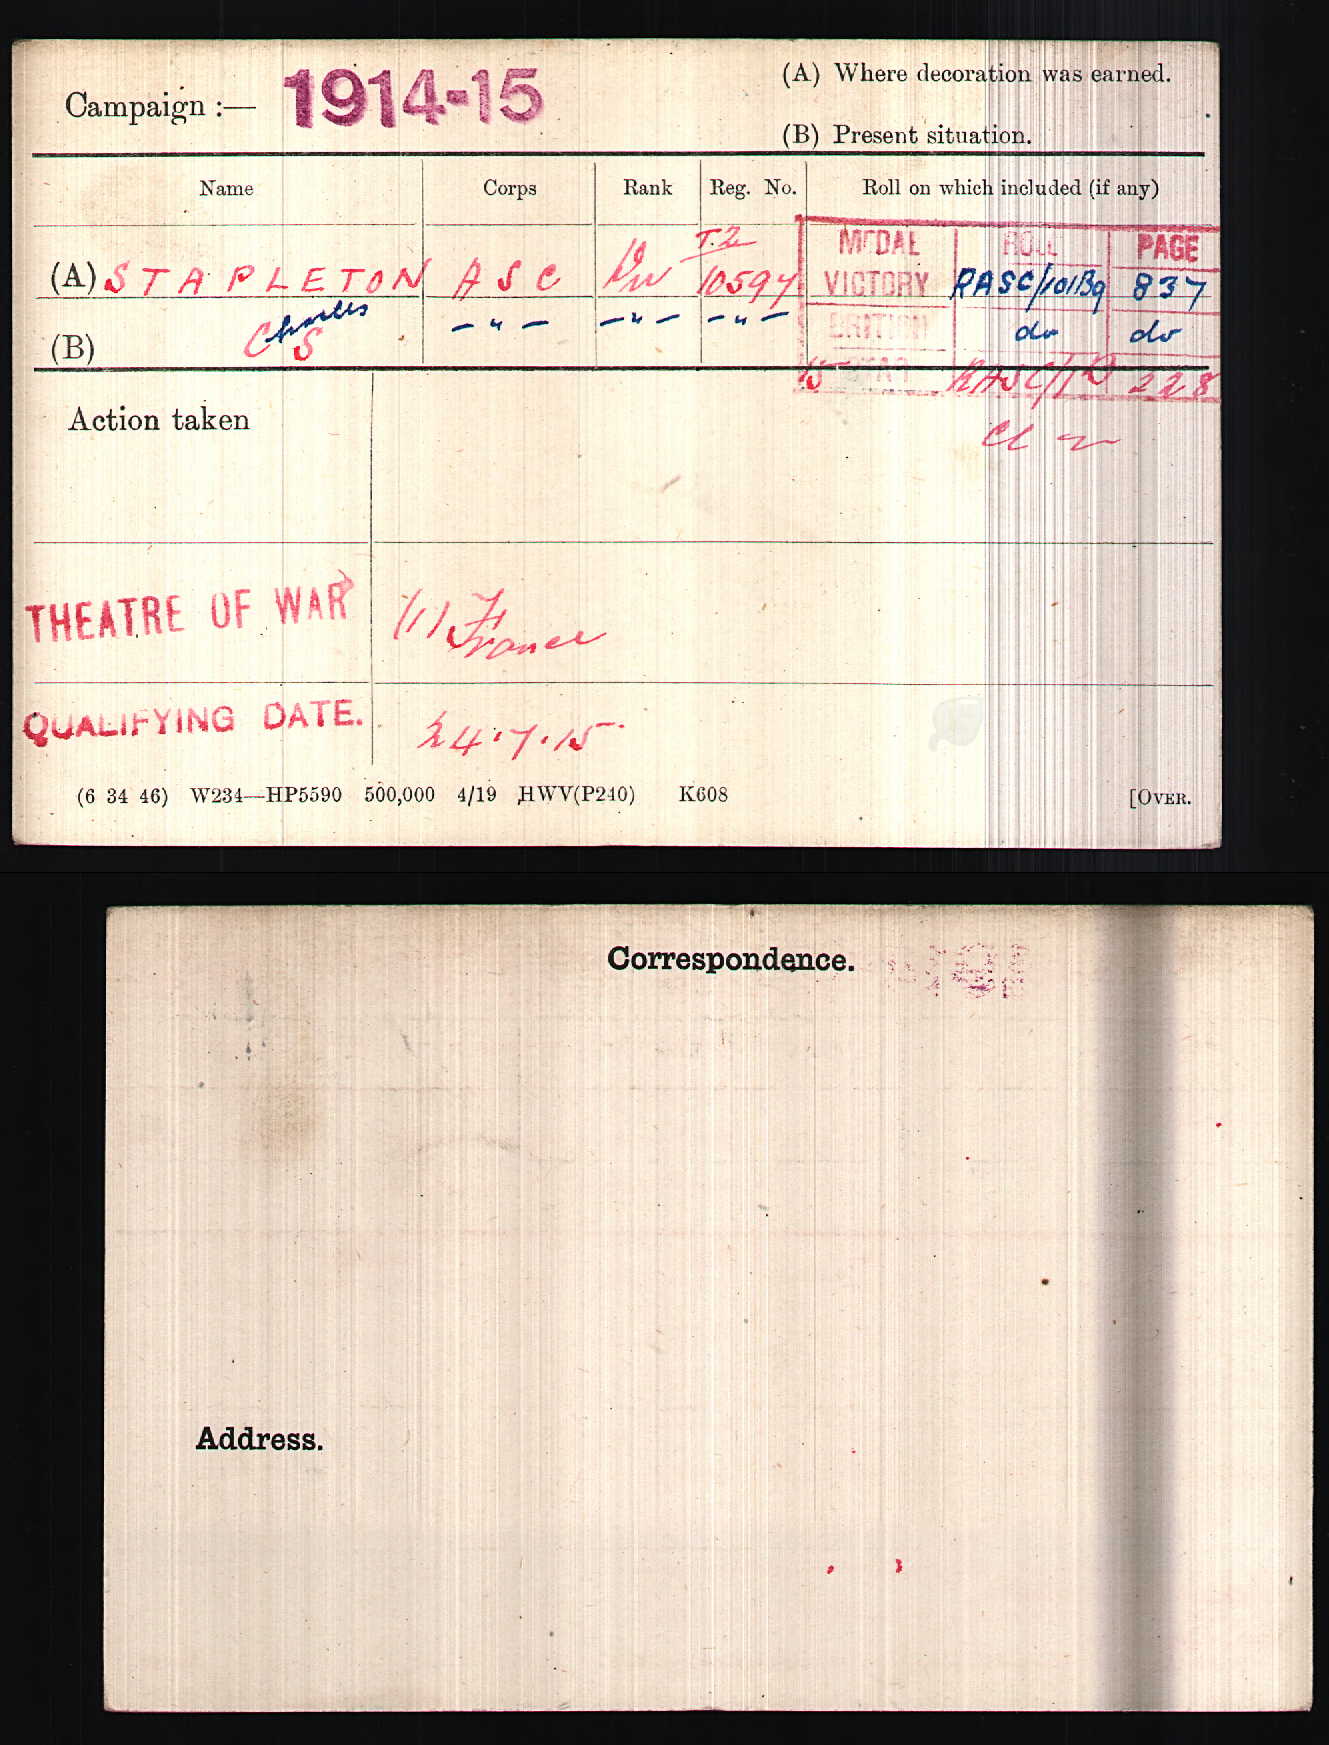 Campaign :— 1914-15
(A) Where decoration was earned.
(B) Present situation.
Name Corps Rank Reg. No. Roll on which included (if any)
MEDAL ROLL PAGE
T.2
(A) STAPLETON ASC Dvr 10594 VICTORY RASC/101B9 837
(B) C Charles S — " — — " — — " — BRITISH do do
15 STAR RASC/1 228
Action taken
THEATRE OF WAR (1) France
QUALIFYING DATE. 24.7.15
(6 34 46) W234—HP5590 500,000 4/19 HWV(P240) K608 [OVER.
Correspondence.
Address.